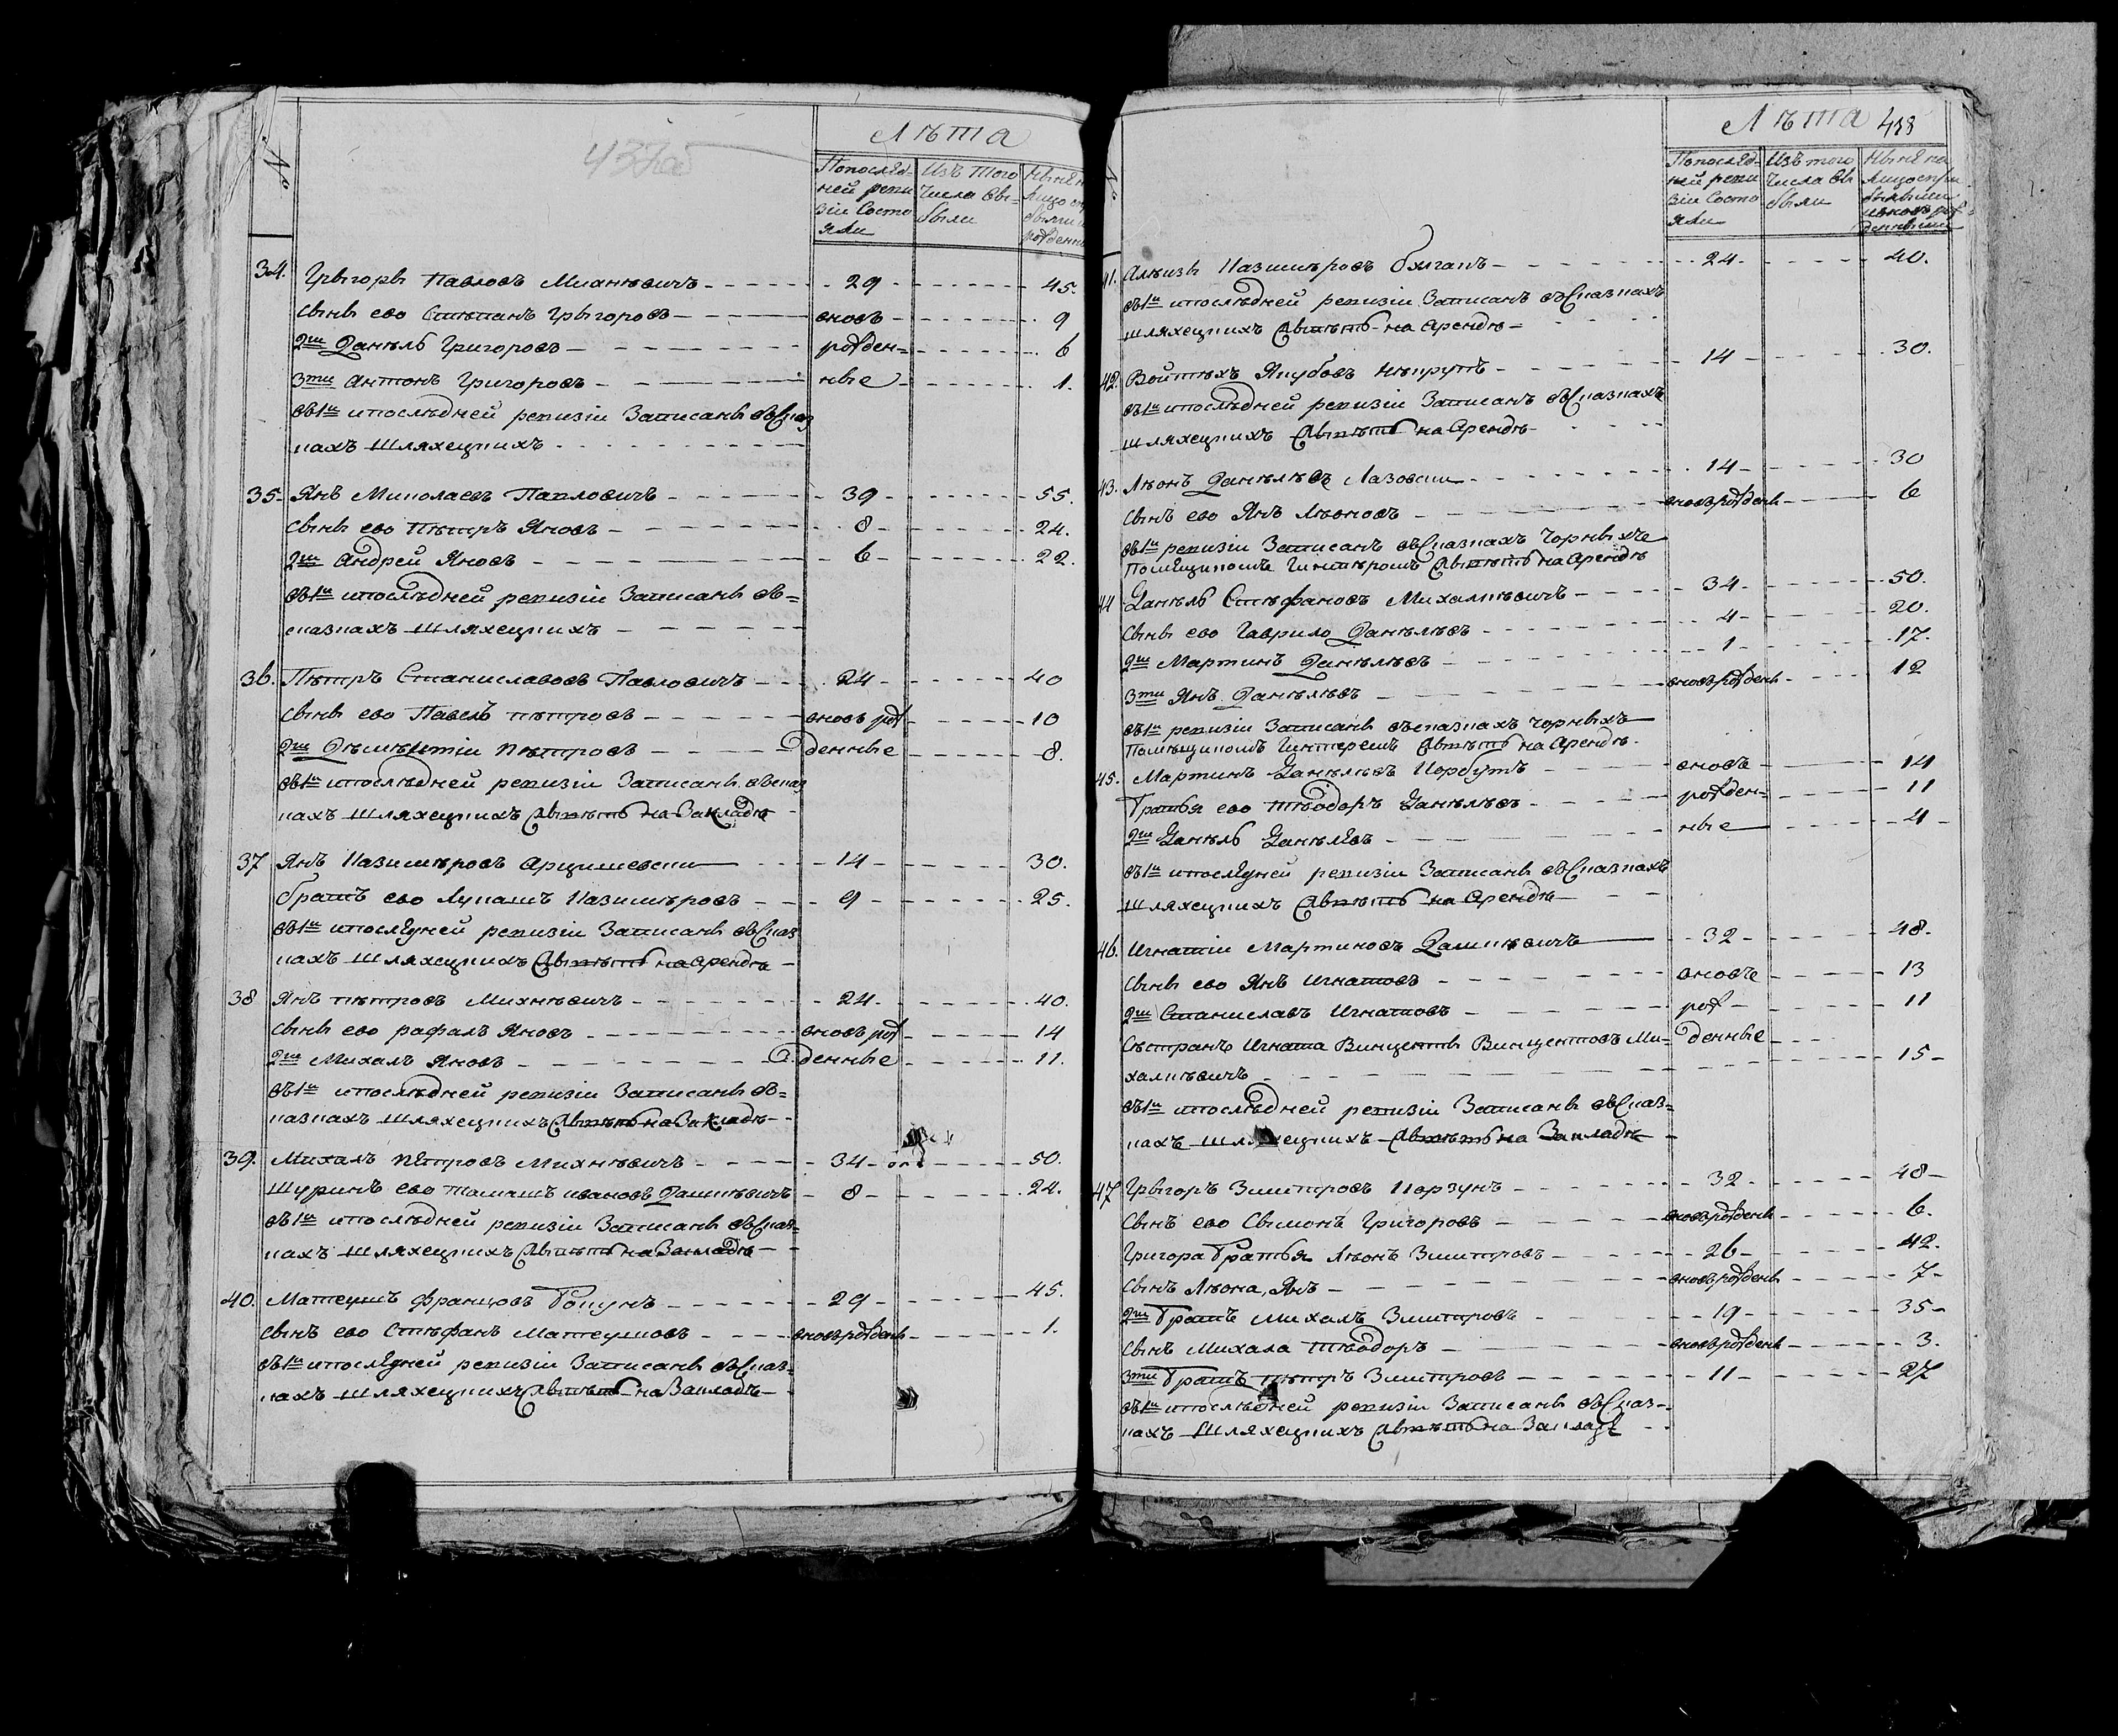 437об
Лѣта
№
Попослѣд=
ней реви
зіи Состо
яли
Изъ Того
Числа Вы=
были
34. Грыгоры Павловъ Миљањевичъ 29 45.
сыны ево Стѣпанъ Грыгоровъ вновь 9
2й Данѣль Григоровъ рожден= 6
3ти Антонъ Григоровъ ные 1.
въ1й ипослѣдней ревизіи Записаны въСказ
кахъ Шляхецкихъ
35 Янъ Миколаевъ Павловичъ 39 55.
сыны ево Пѣтръ Яновъ 8 24.
2й Андрей Яновъ 6 22.
въ1й ипослѣдней ревизіи Записаны въ=
сказкахъ Шляхецкихъ
36. Пѣтръ Станиславовъ Павловичъ 24 40
сыны ево Павелъ пѣтровъ вновь рож 10
2й Дѣмѣнтіи пѣтровъ денные 8.
въ1й ипослѣдней ревизіи Записаны въсказ
кахъ Шляхецкихъ на Закладѣ
37 Янъ Казимѣровъ Арцишевски 14 30.
братъ ево Лукашъ Казимѣровъ 9 25.
въ1й ипослѣдней ревизіи Записаны въСказ
кахъ Шляхецкихъ на арендѣ
38 Янъ пѣтровъ Михнѣвичъ 24 40.
сыны ево рафалъ Яновъ вновь рож 14
2й Михалъ Яновъ денные 11.
въ1й ипослѣдней ревизіи Записаны въ=
казкахъ Шляхецкихъ на Закладѣ
39. Михалъ пѣтровъ Михнѣвичъ 34 50.
Шуринъ ево томашъ ивановъ Дашкѣвичъ 8 24.
въ1й ипослѣдней ревизіи Записаны въСказ=
кахъ Шляхецкихъ на Закладѣ
40. Матеушъ францовъ Бокунъ 29 45.
сынъ ево Стѣфанъ Матеушовъ вноврожденъ 1.
въ1й ипослѣдней ревизіи Записаны въСказ=
кахъ Шляхецкихъ на Закладѣ
Лѣта 438
№
Попослѣд=
ней реви
зіи Состо
яли
Изъ того
Числа Вы
были
41. Алѣизы Казимѣровъ 24 40.
въ1й ипослѣдней ревизіи Записанъ въСказкахъ
шляхецкихъ на Арендѣ
42. Войтѣхъ Якубовъ 14 30.
въ1й ипослѣдней ревизіи Записанъ въСказкахъ
шляхецкихъ на Арендѣ
43. Лѣонъ Данѣлѣвъ Лазовски 14 30
сынъ ево Янъ Лѣоновъ вноврожденъ 6
въ1й ревизіи Записанъ въСказкахъ Чорныхъ
на Арендѣ
44 Данѣль Стѣфановъ Михалкѣвичъ 34 50.
сыны ево Гаврило Данѣлѣвъ 4 20.
2й Мартинъ Данѣлѣвъ 1 17.
3ти Янъ Данѣлѣвъ вноврожденъ 12
въ1й ревизіи Записаны въсказкахъ Чорныхъ
на Арендѣ
45. Мартинъ Данѣлѣвъ Корбутъ вновь 14
Братья ево тѣодоръ Данѣлѣвъ рожден= 11
2й Данѣль Данѣлѣвъ ные 4
въ1й ипослѣдней ревизіи Записаны въСказкахъ
Шляхецкихъ на Арендѣ
46. Игнатіи Мартиновъ Дашкѣвичъ 32 48.
сыны ево Янъ Игнатовъ вновь 13
2й Станиславъ Игнатовъ рож 11
Сѣстранъ Игната Винцентъ Винцентовъ Ми= денные
халкѣвичъ 15
въ1й ипослѣдней ревизіи Записаны въСказ=
кахъ Шляхецкихъ на Закладѣ
47 Грыгоръ Змитровъ Корзунъ 32 48
Сынъ ево Сымонъ Григоровъ вноврожденъ 6.
Григора Братья Лѣонъ Змитровъ 26 42.
Сынъ Лѣона, Янъ вноврожденъ 7
2й Братъ Михалъ Змитровъ 19 35
сынъ Михала тѣодоръ вноврожденъ 3.
3ти Братъ пѣтръ Змитровъ 11 27
въ1й ипослѣдней ревизіи Записаны въСказ=
кахъ Шляхецкихъ на Закладѣ